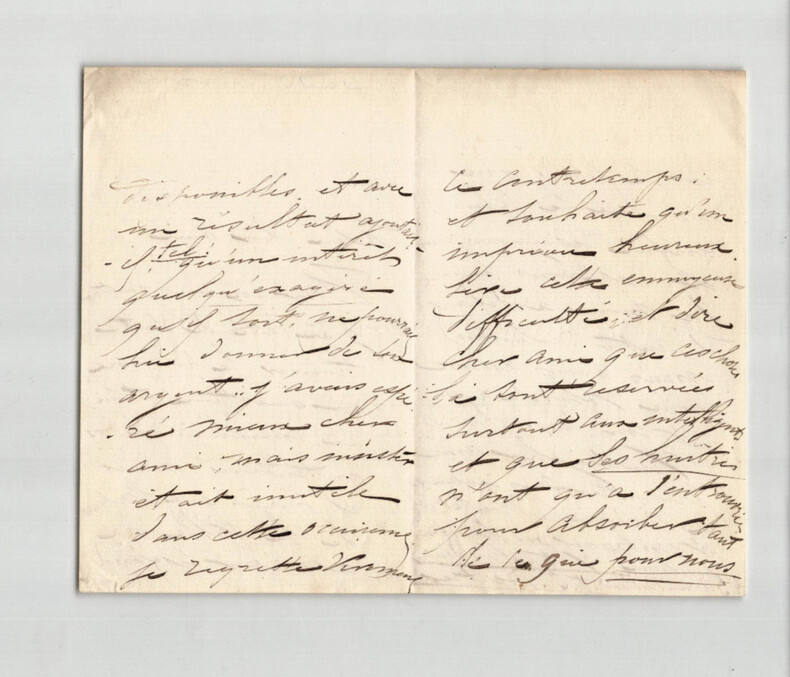 disponibles, et avec
un résultat ajoutait
-il, tel qu'un intérêt
quelqu'exagéré
qu'il soit, ne pourrait
lui donner de son
argent.. j'avais espé
-ré mieux cher
ami, mais insister
était inutile
dans cette occurence
je regrette vraiment
ce contretemps;
et souhaite qu'un
imprévu heureux
cette ennuyeuse
difficulté, et dire
cher ami que ces choses
là sont réservées
surtout aux intelligents
et que les huîtres
n'ont qu'à s'entrouvrir
pour absorber tant
de ce que pour nous